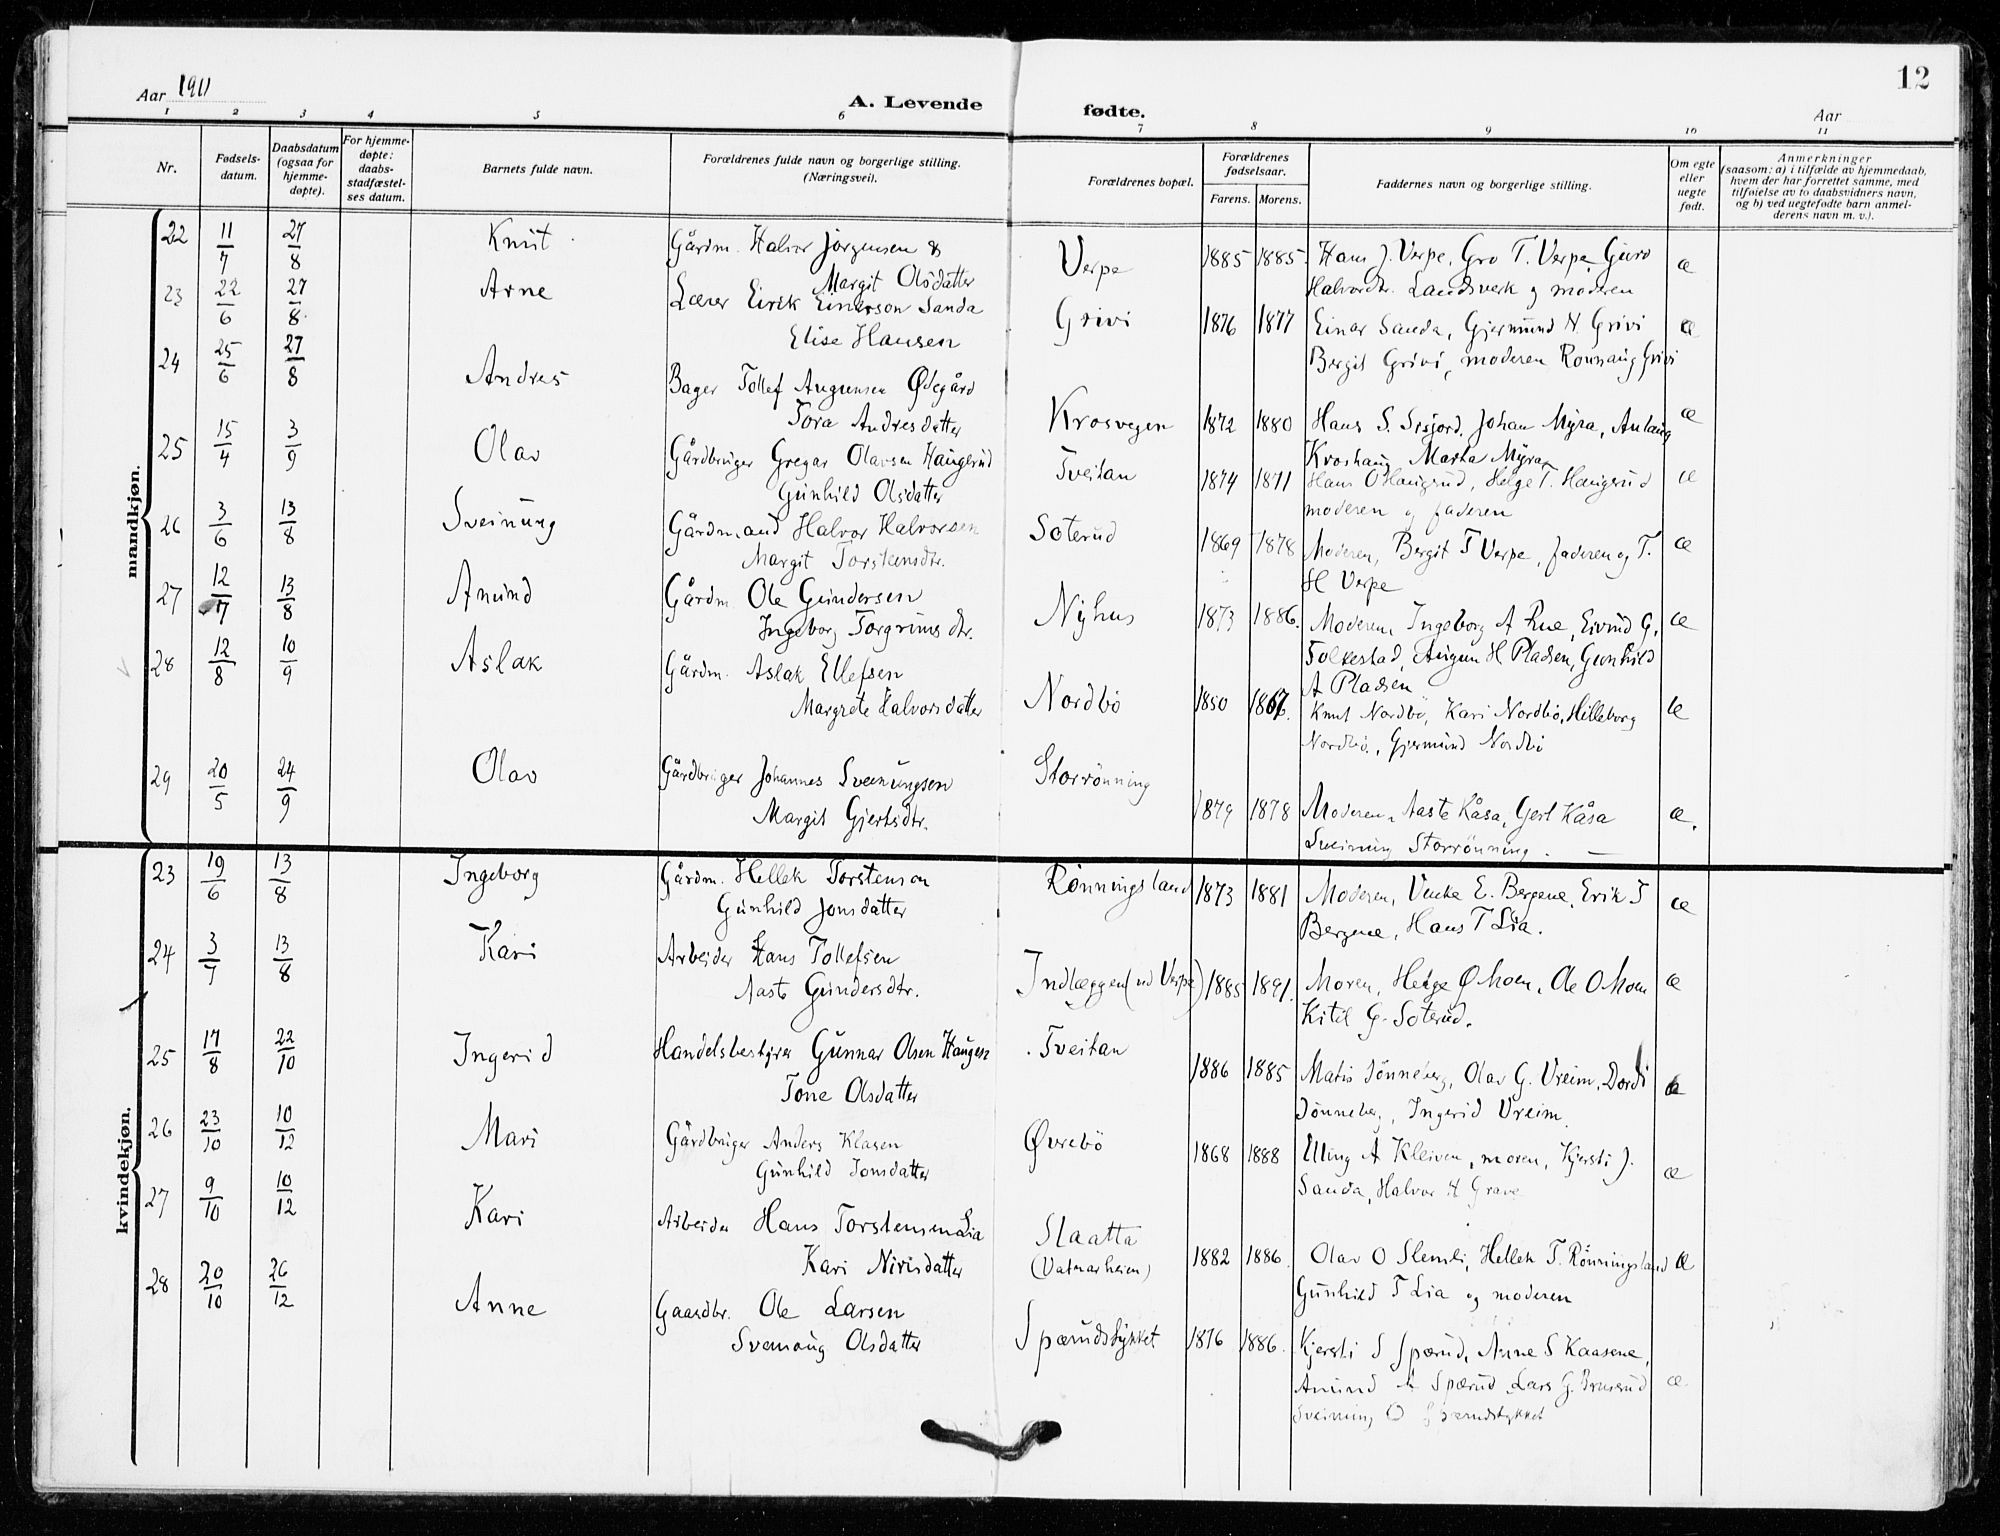 12
Aar 1911
A. Levende fødte.
Aar
1 2 3 4 5 6 7 8 9 10 11
Nr.
Fødsels-
datum.
Daabsdatum
(ogsaa for
hjemme-
døpte).
For hjemme-
døpte:
daabs-
stadfæstel-
ses datum.
Barnets fulde navn.
Forældrenes fulde navn og borgerlige stilling.
(Næringsvei).
Forældrenes bopæl.
Forældrenes
fødselsaar.
Farens. Morens.
Faddernes navn og borgerlige stilling.
Om egte
eller
uegte
født.
Anmerkninger
(saasom: a) i tilfælde av hjemmedaab,
hvem der har forrettet samme, med
tilføielse av to daabsvidners navn,
og b) ved uegtefødte barn anmel-
derens navn m. v.).
mandkjøn.
22 11/7 27/8 Knut Gårdm. Halvor Jørgensen & Verpe 1885 1885 Hans J. Verpe, Gro T. Verpe, Guro æ
Margit Olsdatter Halvordtr. Landsverk og moderen
23 22/6 27/8 Arne Lærer Eirik Einarson Sanda Grivi 1876 1877 Einar Sauda, Gjermund N. Grivi æ
Elise Hansen Bergit Grivi, moderen Rønnaug Grivi
24 25/6 27/8 Andres Bager Tollef Augunsen Ødegård Krosvegen 1872 1880 Hans S. Sisjord, Johan Myra, Anlaug æ
Tora Andresdatter Kroshaug Marta Myra
25 15/4 3/9 Olav Gårdbruger Gregar Olavsen Haugerud Tveitan 1874 1871 Hans O Haugrud, Helge T. Haugerud æ
Gunhild Olsdatter moderen og faderen
26 3/6 13/8 Sveinung Gårdmand Halvor Halvorsen Soterud 1869 1878 Moderen, Bergit T Verpe, faderen og T. æ
Margit Torstensdtr. H Verpe
27 12/7 13/8 Amund Gårdm. Ole Gundersen Nyhus 1873 1886. Moderen, Ingeborg A Rue, Eivind G. æ
Ingeborg Torgrimsdtr. Folkestad, Augun H Pladsen, Gunhild
A Pladsen
28 12/8 10/9 Aslak Gårdm. Aslak Ellefsen Nordbö 1850 1867. Knut Nordbö, Kari Nordbö, Hilleborg æ
Margrete Halvorsdatter Nordbö, Gjermund Nordbö
29 20/5 24/9 Olav Gårdbruger Johannes Sveinungsen Storrönning 1879 1878 Moderen, Aaste Kåsa, Gert Kåsa æ.
Margit Gjertsdtr. Sveinung Storrönning.
kvindekjøn.
23 19/6 13/8 Ingeborg Gårdm. Hellek Torstenson Rönningsland 1873 1881 Moderen, Venke E. Bergene, Erik T æ
Gunhild Jonsdatter Bergene, Hans T Lia.
24 3/7 13/8 Kari Arbeider Hans Tollefsen Indlæggen (ud Verpe) 1885 1891. Moren, Helge Ø Moen, Ole O Moen æ
Aaste Gundersdtr. Kitil G. Soterud.
25 17/8 22/10 Ingerid Handelsbestyrer Gunnar Olsen Haugen Tveitan 1886 1885 Matis Tönneberg, Olav G. Vreim, Dordi æ
Tone Olsdatter Tönneberg, Ingerid Vreim.
26 23/10 10/12 Mari Gårdbruger Anders Klasen Øvrebö 1868 1888 Elling A Kleiven, moren, Kjersti J. æ
Gunhild Jonsdatter Sauda, Halvor H Grave
27 9/10 10/12 Kari Arbeider Hans Torstensen Lia Slaatta 1882 1886. Olav O Slemli, Hellek T. Rönningsland æ
Kari Nirisdatter (Vatnarheien) Gunhild T Lia og moderen
28 20/10 26/12 Anne Gaardbr. Ole Larsen Spærudstykket 1876 1886. Kjersti S Spærud, Anne S Kaasene,
Svenaug Olsdatter Amund A Spærud, Lars G. Brusrud æ
Sveinung O Spærudstykket